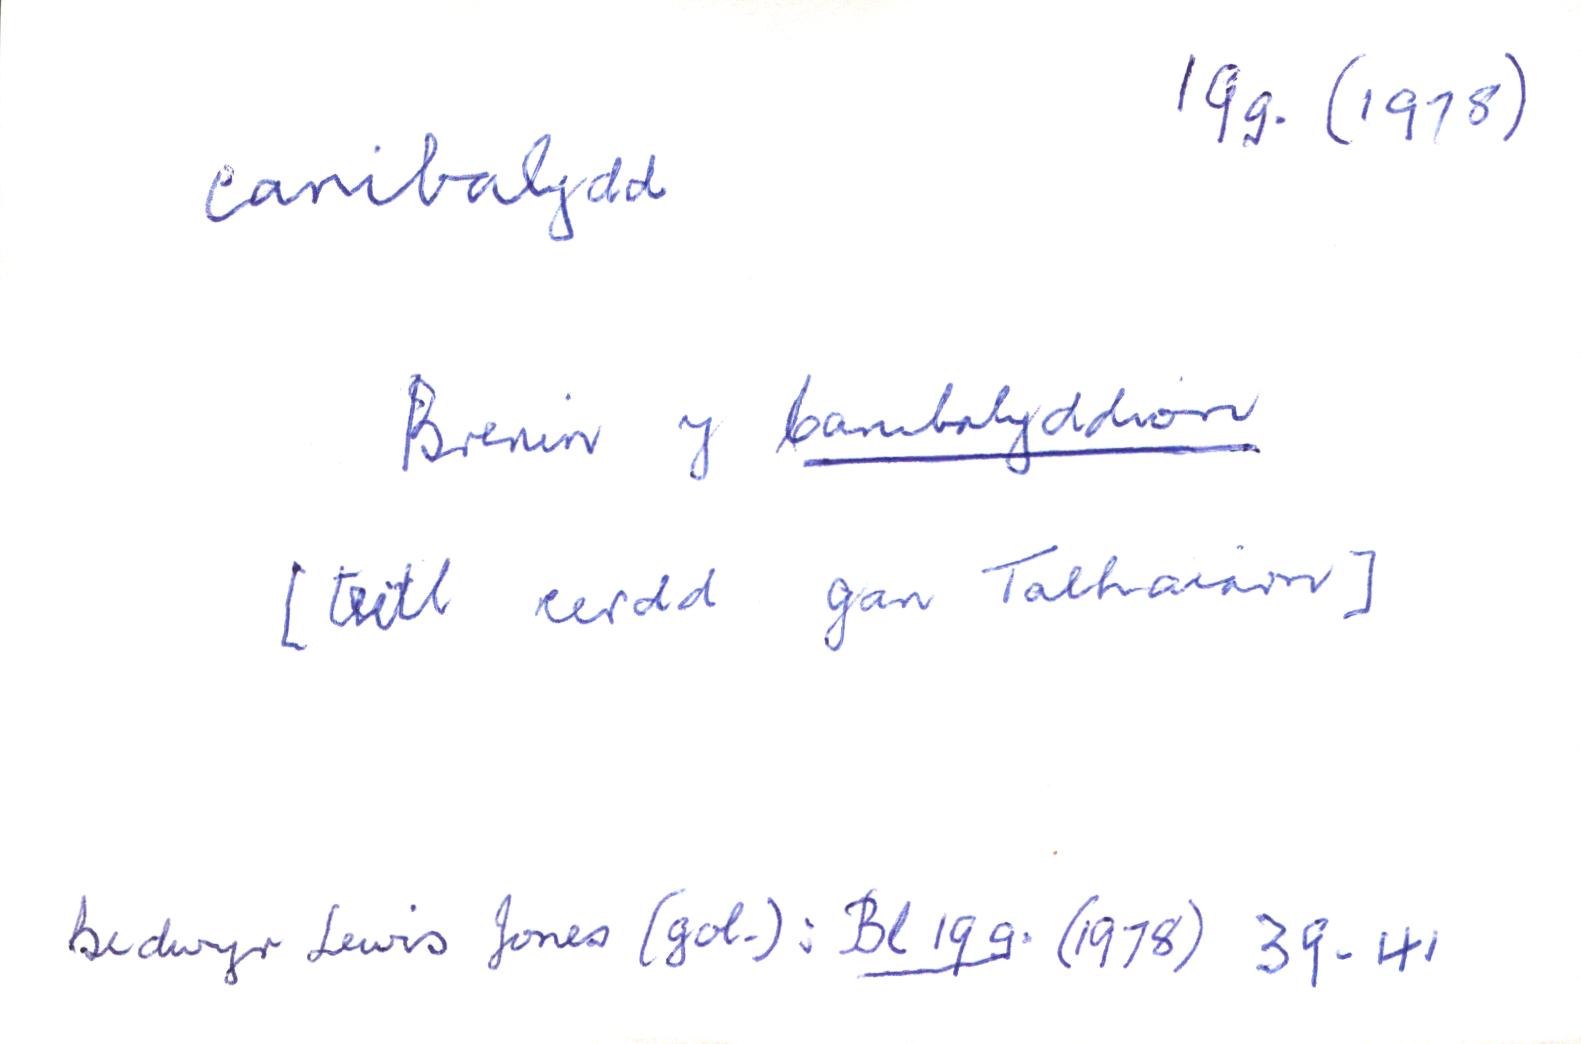 19g. (1978)
canibalydd
Brenin y Canibalyddion
[teitl cerdd gan Talhaiarn]
Bedwyr Lewis Jones (gol.): Bl 19g. (1978) 39-41